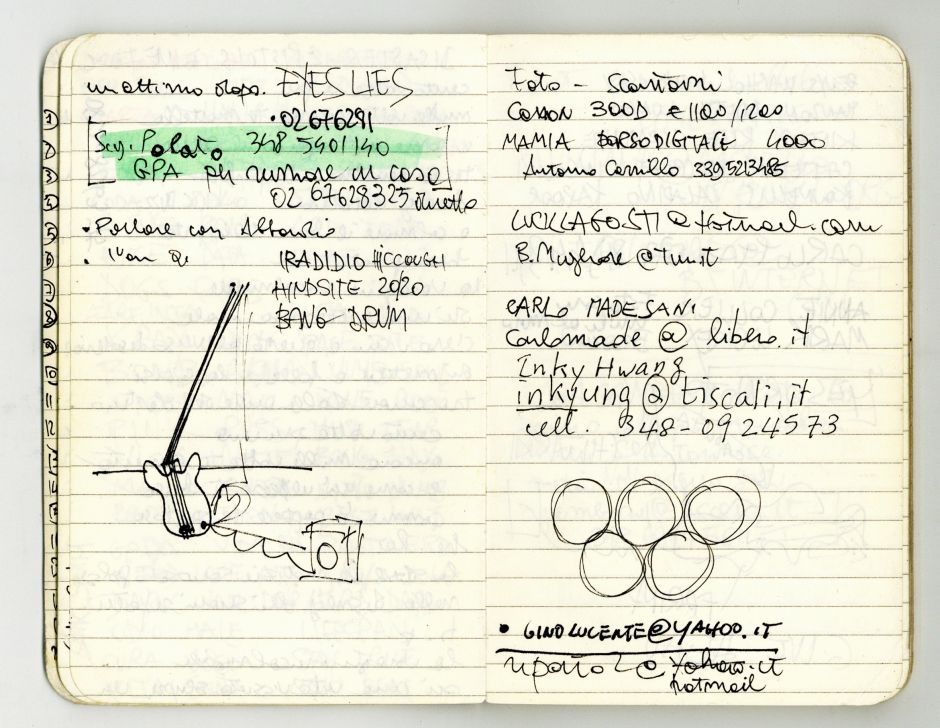 un attimo dopo. EYES LIES
• 02 676291
Sig. Polato 348 5401140
GPA per rumore in casa
02 67628325 diretto
• Parlare con
IRADIDIO HICCOUGH
HINDSITE 20/20
BANG DRUM
Foto - Scantorni
CANON 300D € 1100/1200
MAMIA DORSO DIGITALE 4000
Antonio Carrillo 3395213485
LUCILLAGOSTI@hotmail.com
B.Mughore @tin.it
CARLO MADESANI
carlomade @ libero.it
Inky Hwang
inkyung@tiscali.it
cell. 348-0924573
• GINOLUCENTE@YAHOO.IT
Yahoo.it
hotmail
1
2
3
4
5
6
7
8
9
10
11
12